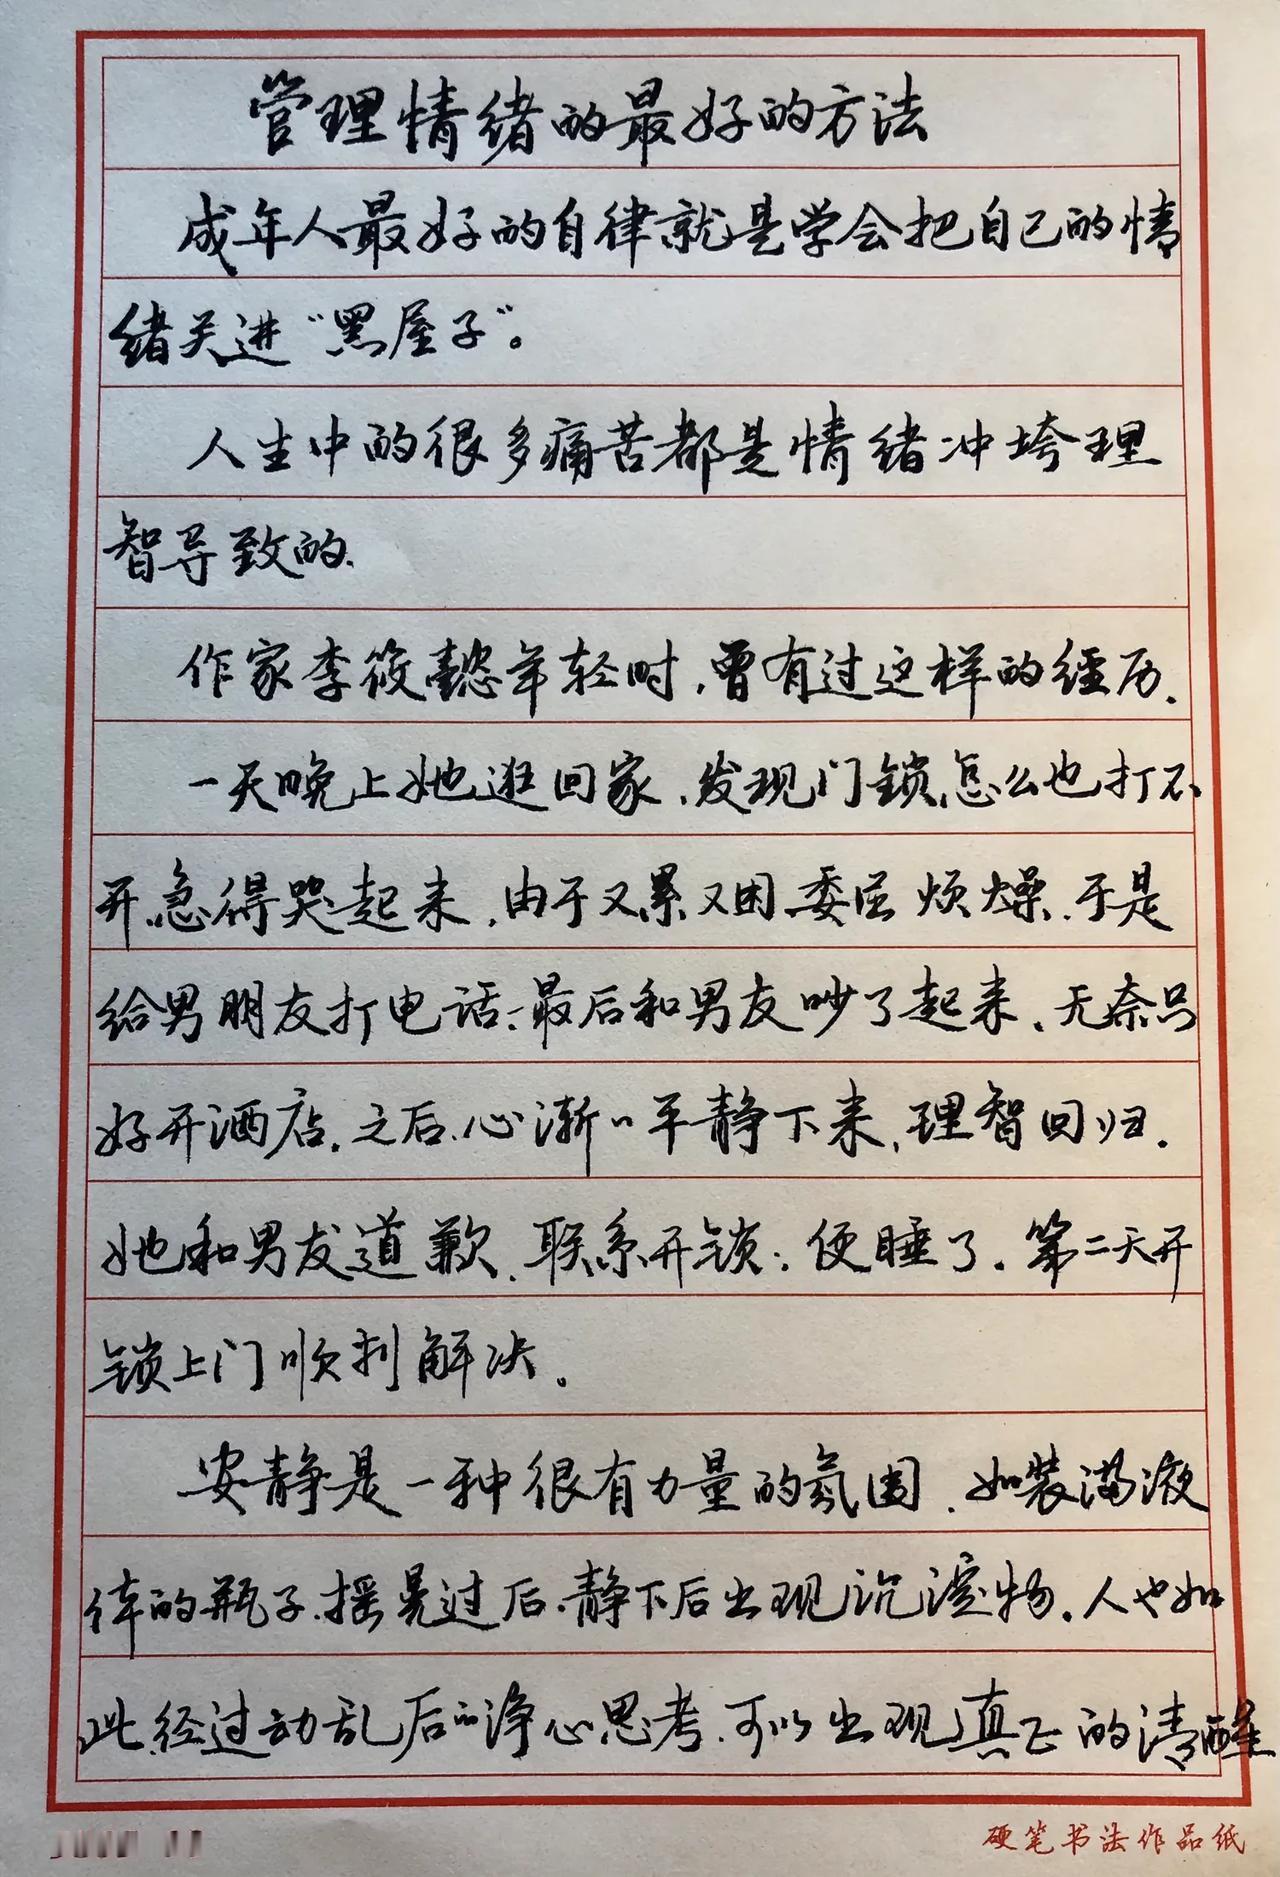 管理情绪的最好的方法
成年人最好的自律就是学会把自己的情
绪关进“黑屋子”。
人生中的很多痛苦都是情绪冲垮理
智导致的.
作家李筱懿年轻时,曾有过这样的经历.
一天晚上她逛回家,发现门锁,怎么也打不
开,急得哭起来,由于又累又困,委屈烦燥.于是
给男朋友打电话;最后和男友吵了起来.无奈只
好开酒店.之后,心渐〃平静下来,理智回归.
她和男友道歉.联系开锁;便睡了.第二天开
锁上门顺利解决.
安静是一种很有力量的氛围.如装满液
体的瓶子,摇晃过后,静下后出现沉淀物.人也如
此,经过动乱后的净心思考,可以出现真正的清醒
硬笔书法作品纸